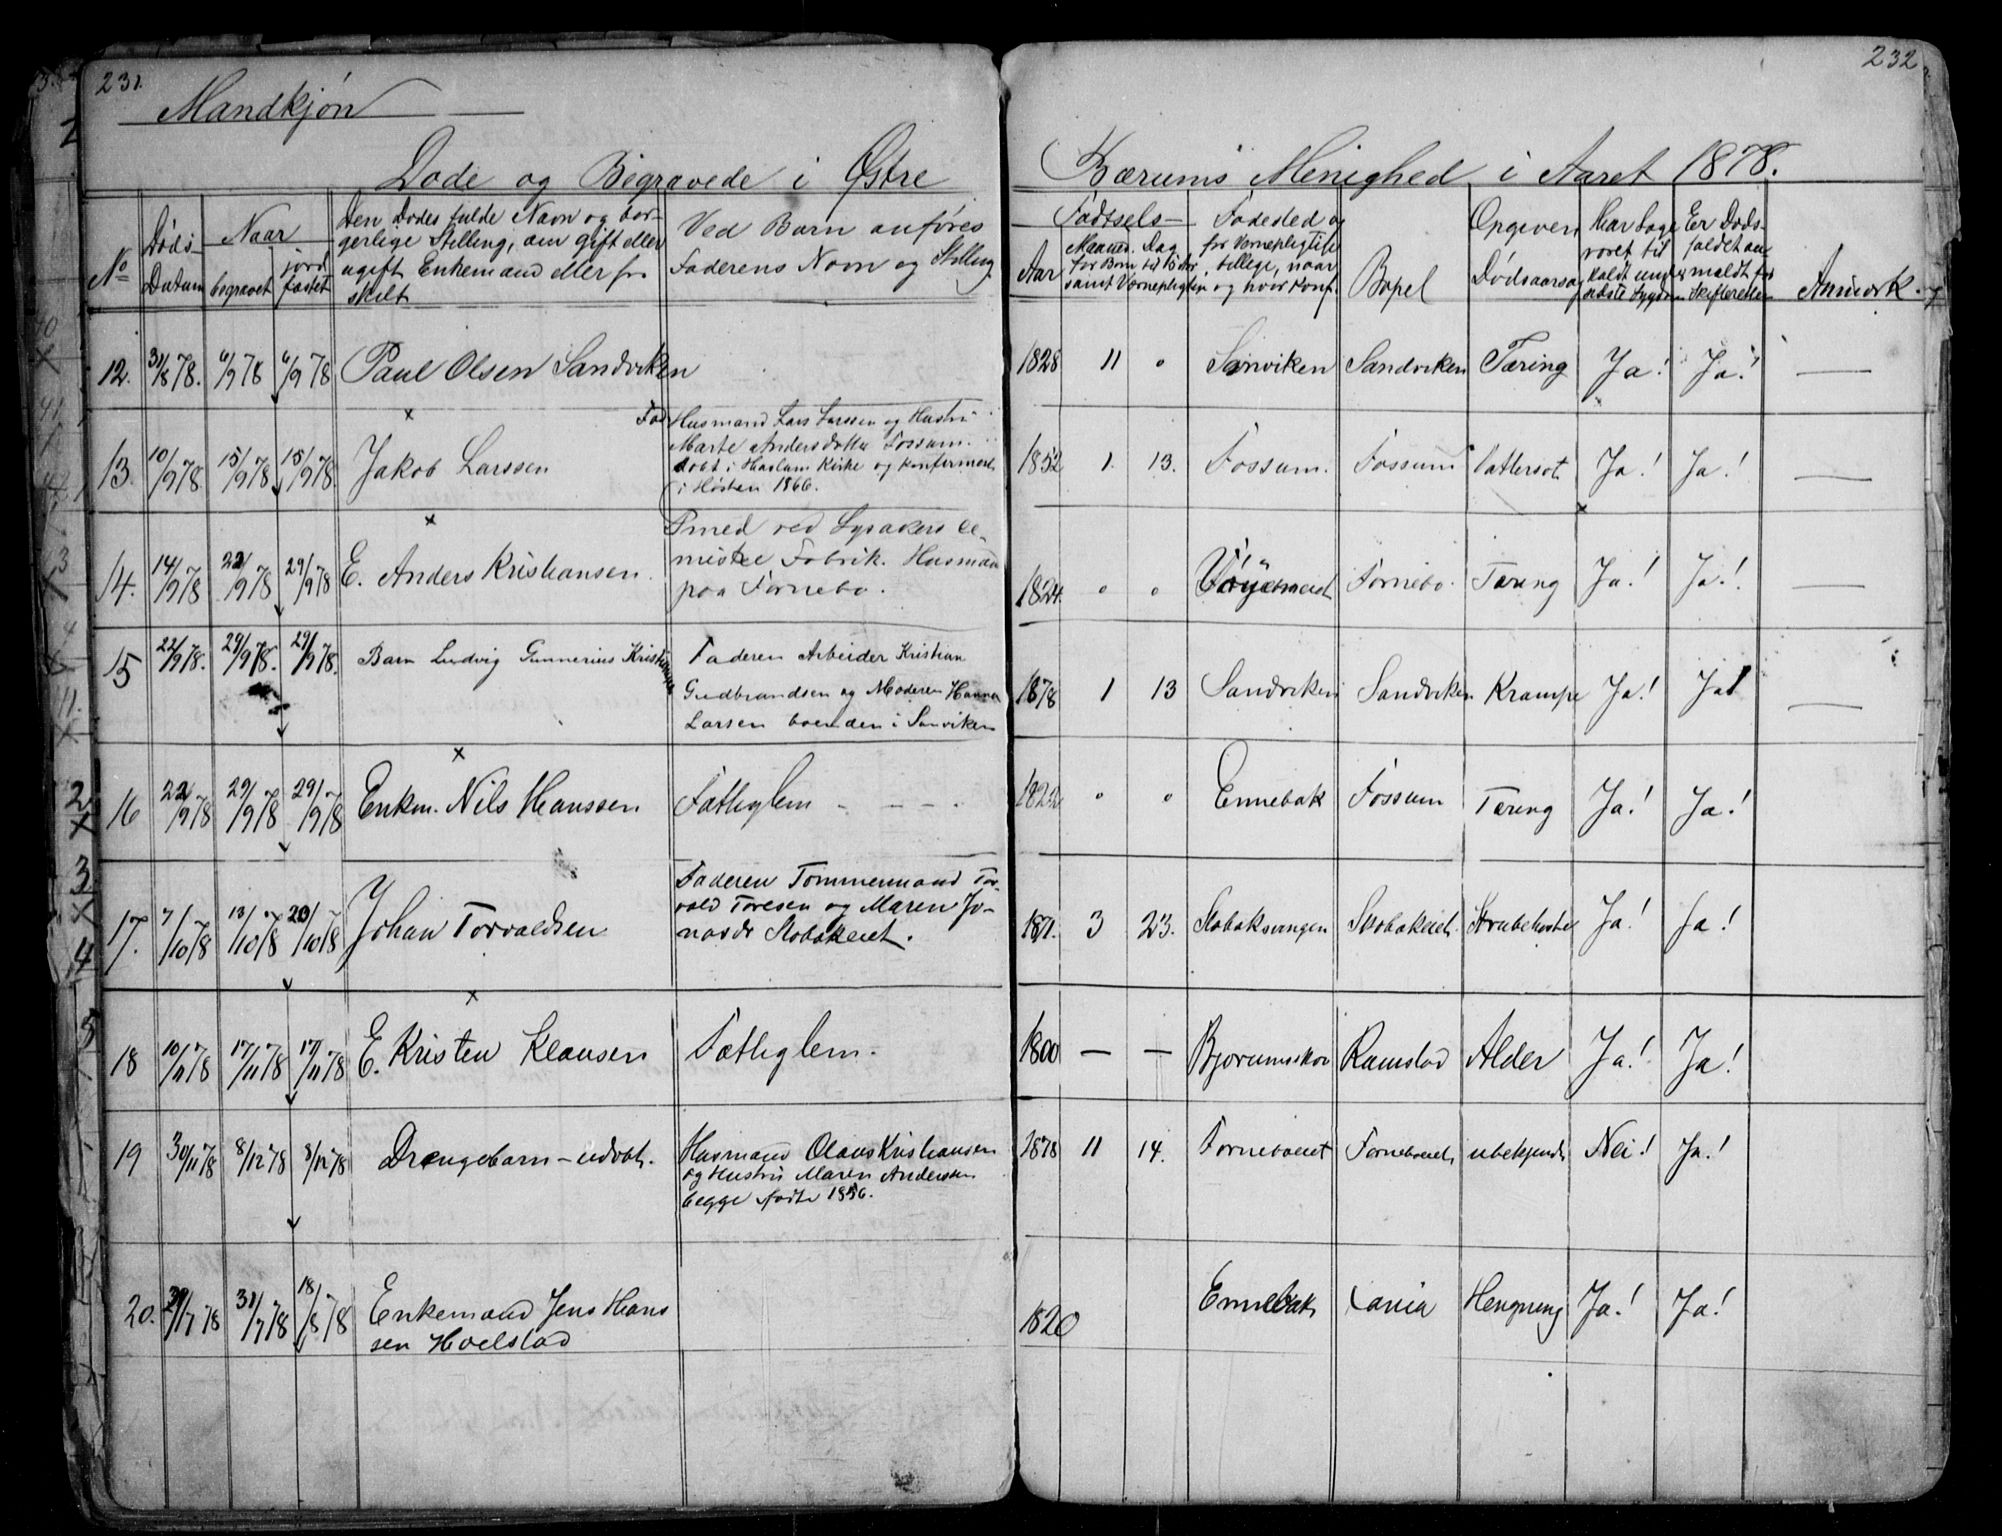 231.
232
Mandkjøn
Døde og Begravede i Østre
Bærums Menighed i Aaret 1878.
No
Døds-
Datum
Naar
begravet
jord
fæstet
Den Dødes fulde Navn og bor-
gerlige Stilling, om gift eller
ugift, Enkemand eller fra
skilt
Ved Barn anføres
Faderens Navn og Stilling
Fødtsels-
Aar
Maaned. Dag
for Børn til
samt Værnepligtige
Fødested og
for Værnepligtige
tillige, naar
og hvor konf.
Bopel
Opgiven
Dødsaarsag
Har Læge
været til
kaldt under
sidste Sygdom
Er Døds-
faldet an
meldt for
Skifteretten
Anmærk.
12. 31/8 78. 6/9 78 6/9 78 Paul Olsen Sandviken
1828 11 " Sanviken Sandviken Tæring Ja! Ja! —
13. 10/9 78 15/9 78 15/9 78 Jakob Larssen
Husmand Lars Larssen og Hustru
Marte Andersdatter Fossum.
døbt i Haslum Kirke og konfirmeret
i Høsten 1866.
1852 1. 13. Fossum. Fossum Vattersot Ja! Ja! —
14. 14/9 78 22/9 78 29/9 78 E. Anders Kristiansen.
Smed ved Lysakers ce-
miske Fabrik. Husmand
paa Fornebo.
1824. " " Fornebo. Tæring Ja! Ja! —
15 22/9 78. 29/9 78. 29/9 78. Barn Ludvig Gunnerius Kristiansen
Faderen Arbeider Kristian
Gudbrandsen og Moderen Hanna
Larsen boenden i Sanviken
1878 1 13 Sandviken Sandviken Krampe Ja! Ja! —
16 22/9 78 29/9 78 29/9 78 Enkm. Nils Hanssen Fattiglem - - - .
1822 " " Ennebak Fossum Tæring Ja! Ja!
17. 7/10 78 13/10 78 20/10 78 Johan Torvaldsen
Faderen Tømmermand Tor-
vald Toresen og Maren Jo-
nasdr Stobakeiet.
1871. 3 23. Stobaksvingen Skobakeiet. Strubehoste Ja! Ja!
18 10/11 78 17/11 78 17/11 78 E. Kristen Klausen Fattiglem.
1800 — — Bjorumskov Ramstad Alder Ja! Ja!
19 30/11 78 8/12 78 8/12 78 Drengebarn - udøbt.
Husmand Olaus Kristiansen
og Hustru Maren Andersen
begge fødte 1856.
1878 11 14. Forneboeiet Forneboeiet ubekjendt Nei! Ja!
20. /7 78 31/7 78 18/8 78 Enkemand Jens Hans
sen Hoelstad
1820 Ennebak Hengning Ja! Ja!